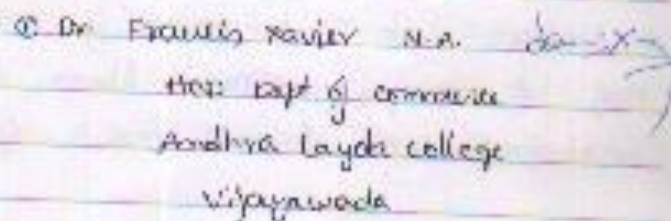 ① Dr. Francis Xavier N.A.
HOD Dept of commerce
Andhra Layola college
Vijayawada